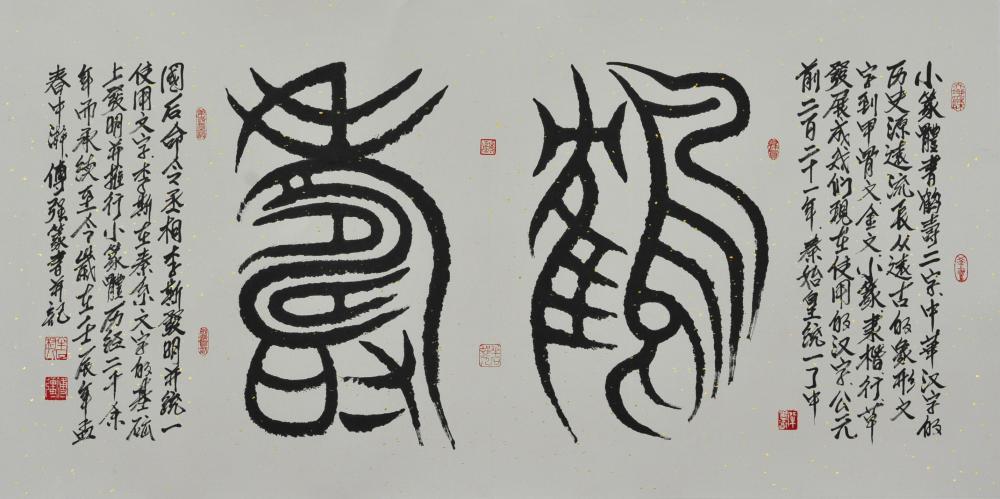 小篆體书鹤寿二字中華汉字的
历史源遠流長从遠古的象形文
字到甲骨文金文小篆隶楷行草
發展成我们現在使用的汉字公元
前二百二十一年秦始皇統一了中
鶴
壽
國后命令丞相李斯發明并統一
使用文字李斯在秦系文字的基础
上發明并推行小篆體历经二千余
年而承续至今歲在壬辰年孟
春中游傅强篆书并記